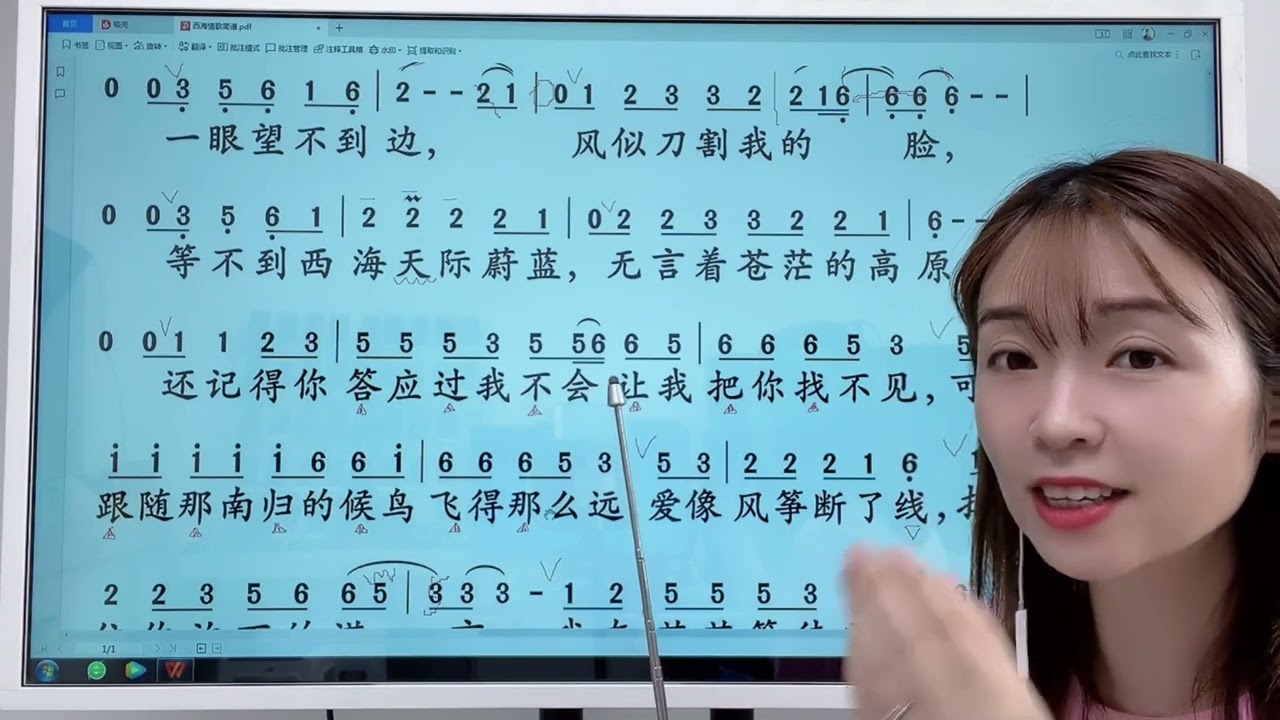 首页 稻壳 西海情歌简谱.pdf
书签 视图 旋转 翻译 批注模式 批注管理 注释工具箱 水印 提取和识别 点此查找文本
0 0 3 5 6 1 6 | 2 - - 2 1 | 0 1 2 3 3 2 | 2 1 6 | 6 6 6 - - |
一眼望不到边， 风似刀割我的 脸，
0 0 3 5 6 1 | 2 2 2 2 1 | 0 2 2 3 3 2 2 1 | 6 - -
等不到西海天际蔚蓝，无言着苍茫的高原
0 0 1 1 2 3 | 5 5 5 3 5 5 6 6 5 | 6 6 6 5 3 5
还记得你答应过我不会让我把你找不见，可
i i i i i 6 6 i | 6 6 6 5 3 5 3 | 2 2 2 1 6 1
跟随那南归的候鸟飞得那么远 爱像风筝断了线，
2 2 3 5 6 6 5 | 3 3 3 - 1 2 5 5 5 3
1/1